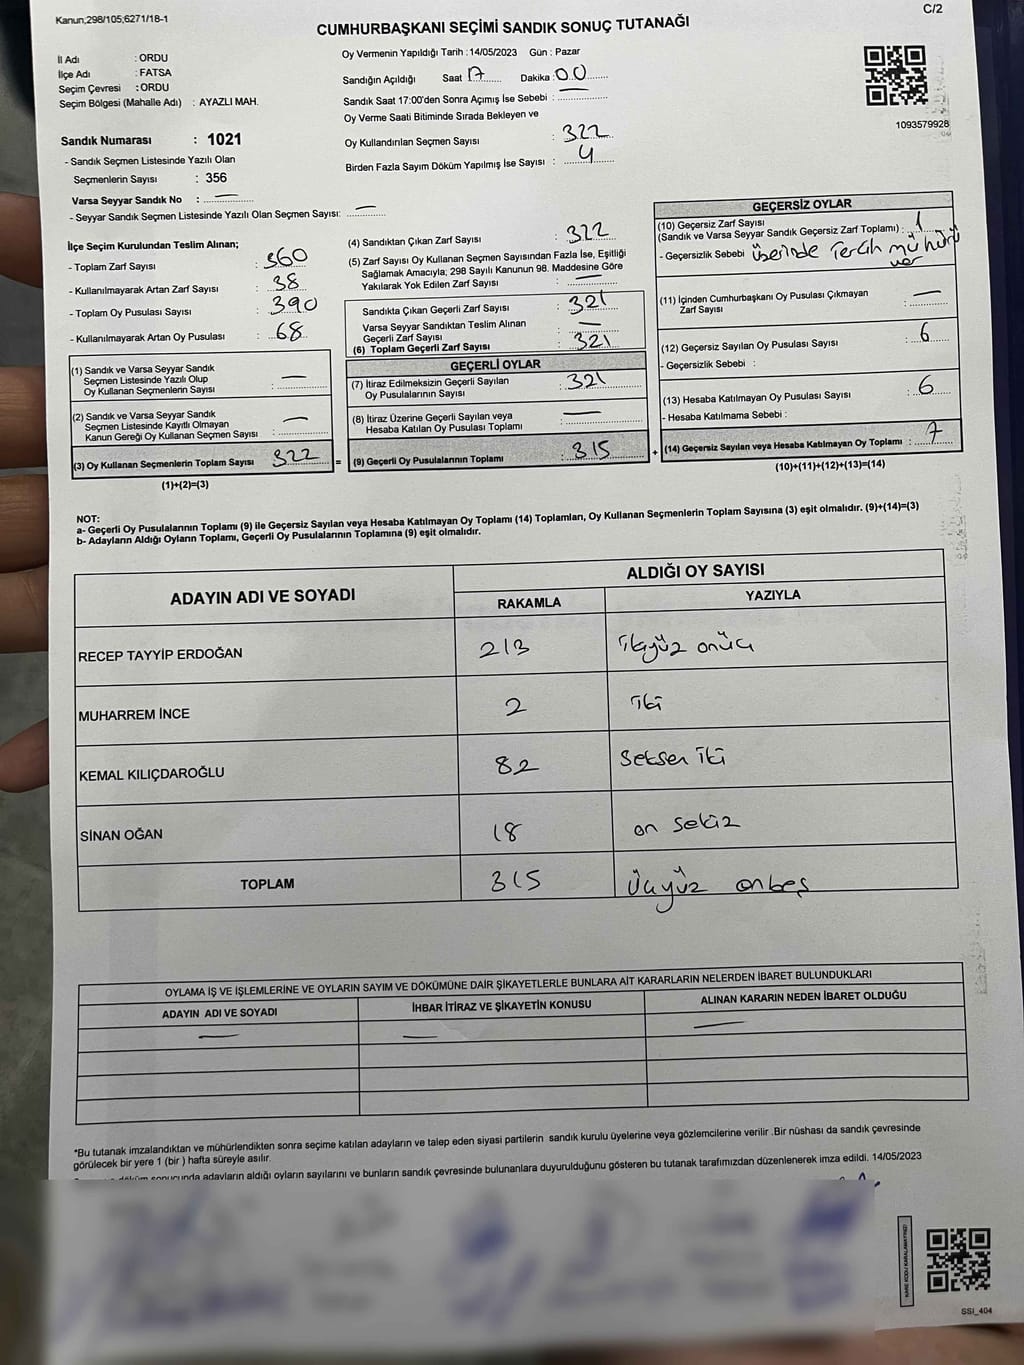 Kanun;298/105;6271/18-1
C/2
CUMHURBAŞKANI SEÇİMİ SANDIK SONUÇ TUTANAĞI
İl Adı : ORDU
İlçe Adı : FATSA
Seçim Çevresi : ORDU
Seçim Bölgesi (Mahalle Adı) : AYAZLI MAH.
Sandık Numarası : 1021
- Sandık Seçmen Listesinde Yazılı Olan
Seçmenlerin Sayısı : 356
Varsa Seyyar Sandık No : —
- Seyyar Sandık Seçmen Listesinde Yazılı Olan Seçmen Sayısı: —
Oy Vermenin Yapıldığı Tarih : 14/05/2023 Gün : Pazar
Sandığın Açıldığı Saat 17 Dakika : 00
Sandık Saat 17:00'den Sonra Açımış İse Sebebi : —
Oy Verme Saati Bitiminde Sırada Bekleyen ve
Oy Kullandırılan Seçmen Sayısı : 322
Birden Fazla Sayım Döküm Yapılmış İse Sayısı : 4
1093579928
İlçe Seçim Kurulundan Teslim Alınan;
- Toplam Zarf Sayısı : 360
- Kullanılmayarak Artan Zarf Sayısı : 38
- Toplam Oy Pusulası Sayısı : 390
- Kullanılmayarak Artan Oy Pusulası : 68
(1) Sandık ve Varsa Seyyar Sandık
Seçmen Listesinde Yazılı Olup
Oy Kullanan Seçmenlerin Sayısı : —
(2) Sandık ve Varsa Seyyar Sandık
Seçmen Listesinde Kayıtlı Olmayan
Kanun Gereği Oy Kullanan Seçmen Sayısı : —
(3) Oy Kullanan Seçmenlerin Toplam Sayısı 322
(1)+(2)=(3)
=
(4) Sandıktan Çıkan Zarf Sayısı : 322
(5) Zarf Sayısı Oy Kullanan Seçmen Sayısından Fazla İse, Eşitliği
Sağlamak Amacıyla; 298 Sayılı Kanunun 98. Maddesine Göre
Yakılarak Yok Edilen Zarf Sayısı : —
Sandıkta Çıkan Geçerli Zarf Sayısı : 321
Varsa Seyyar Sandıktan Teslim Alınan
Geçerli Zarf Sayısı : —
(6) Toplam Geçerli Zarf Sayısı : 321
GEÇERLİ OYLAR
(7) İtiraz Edilmeksizin Geçerli Sayılan
Oy Pusulalarının Sayısı : 321
(8) İtiraz Üzerine Geçerli Sayılan veya
Hesaba Katılan Oy Pusulası Toplamı : —
(9) Geçerli Oy Pusulalarının Toplamı : 315
+
GEÇERSİZ OYLAR
(10) Geçersiz Zarf Sayısı
(Sandık ve Varsa Seyyar Sandık Geçersiz Zarf Toplamı) : 1
- Geçersizlik Sebebi : üzerinde Tercih mühürü
var
(11) İçinden Cumhurbaşkanı Oy Pusulası Çıkmayan
Zarf Sayısı : —
(12) Geçersiz Sayılan Oy Pusulası Sayısı : 6
- Geçersizlik Sebebi :
(13) Hesaba Katılmayan Oy Pusulası Sayısı : 6
- Hesaba Katılmama Sebebi :
(14) Geçersiz Sayılan veya Hesaba Katılmayan Oy Toplamı : 7
(10)+(11)+(12)+(13)=(14)
NOT:
a- Geçerli Oy Pusulalarının Toplamı (9) ile Geçersiz Sayılan veya Hesaba Katılmayan Oy Toplamı (14) Toplamları, Oy Kullanan Seçmenlerin Toplam Sayısına (3) eşit olmalıdır. (9)+(14)=(3)
b- Adayların Aldığı Oyların Toplamı, Geçerli Oy Pusulalarının Toplamına (9) eşit olmalıdır.
ADAYIN ADI VE SOYADI
ALDIĞI OY SAYISI
RAKAMLA YAZIYLA
RECEP TAYYİP ERDOĞAN 213 ikiyüz onüç
MUHARREM İNCE 2 iki
KEMAL KILIÇDAROĞLU 82 Seksen iki
SİNAN OĞAN 18 on sekiz
TOPLAM 315 üçyüz onbeş
OYLAMA İŞ VE İŞLEMLERİNE VE OYLARIN SAYIM VE DÖKÜMÜNE DAİR ŞİKAYETLERLE BUNLARA AİT KARARLARIN NELERDEN İBARET BULUNDUKLARI
ADAYIN ADI VE SOYADI İHBAR İTİRAZ VE ŞİKAYETİN KONUSU ALINAN KARARIN NEDEN İBARET OLDUĞU
— — —
*Bu tutanak imzalandıktan ve mühürlendikten sonra seçime katılan adayların ve talep eden siyasi partilerin sandık kurulu üyelerine veya gözlemcilerine verilir .Bir nüshası da sandık çevresinde
görülecek bir yere 1 (bir ) hafta süreyle asılır.
döküm sonucunda adayların aldığı oyların sayılarını ve bunların sandık çevresinde bulunanlara duyurulduğunu gösteren bu tutanak tarafımızdan düzenlenerek imza edildi. 14/05/2023
KARE KODU KARALAMAYINIZ!
SSI_404